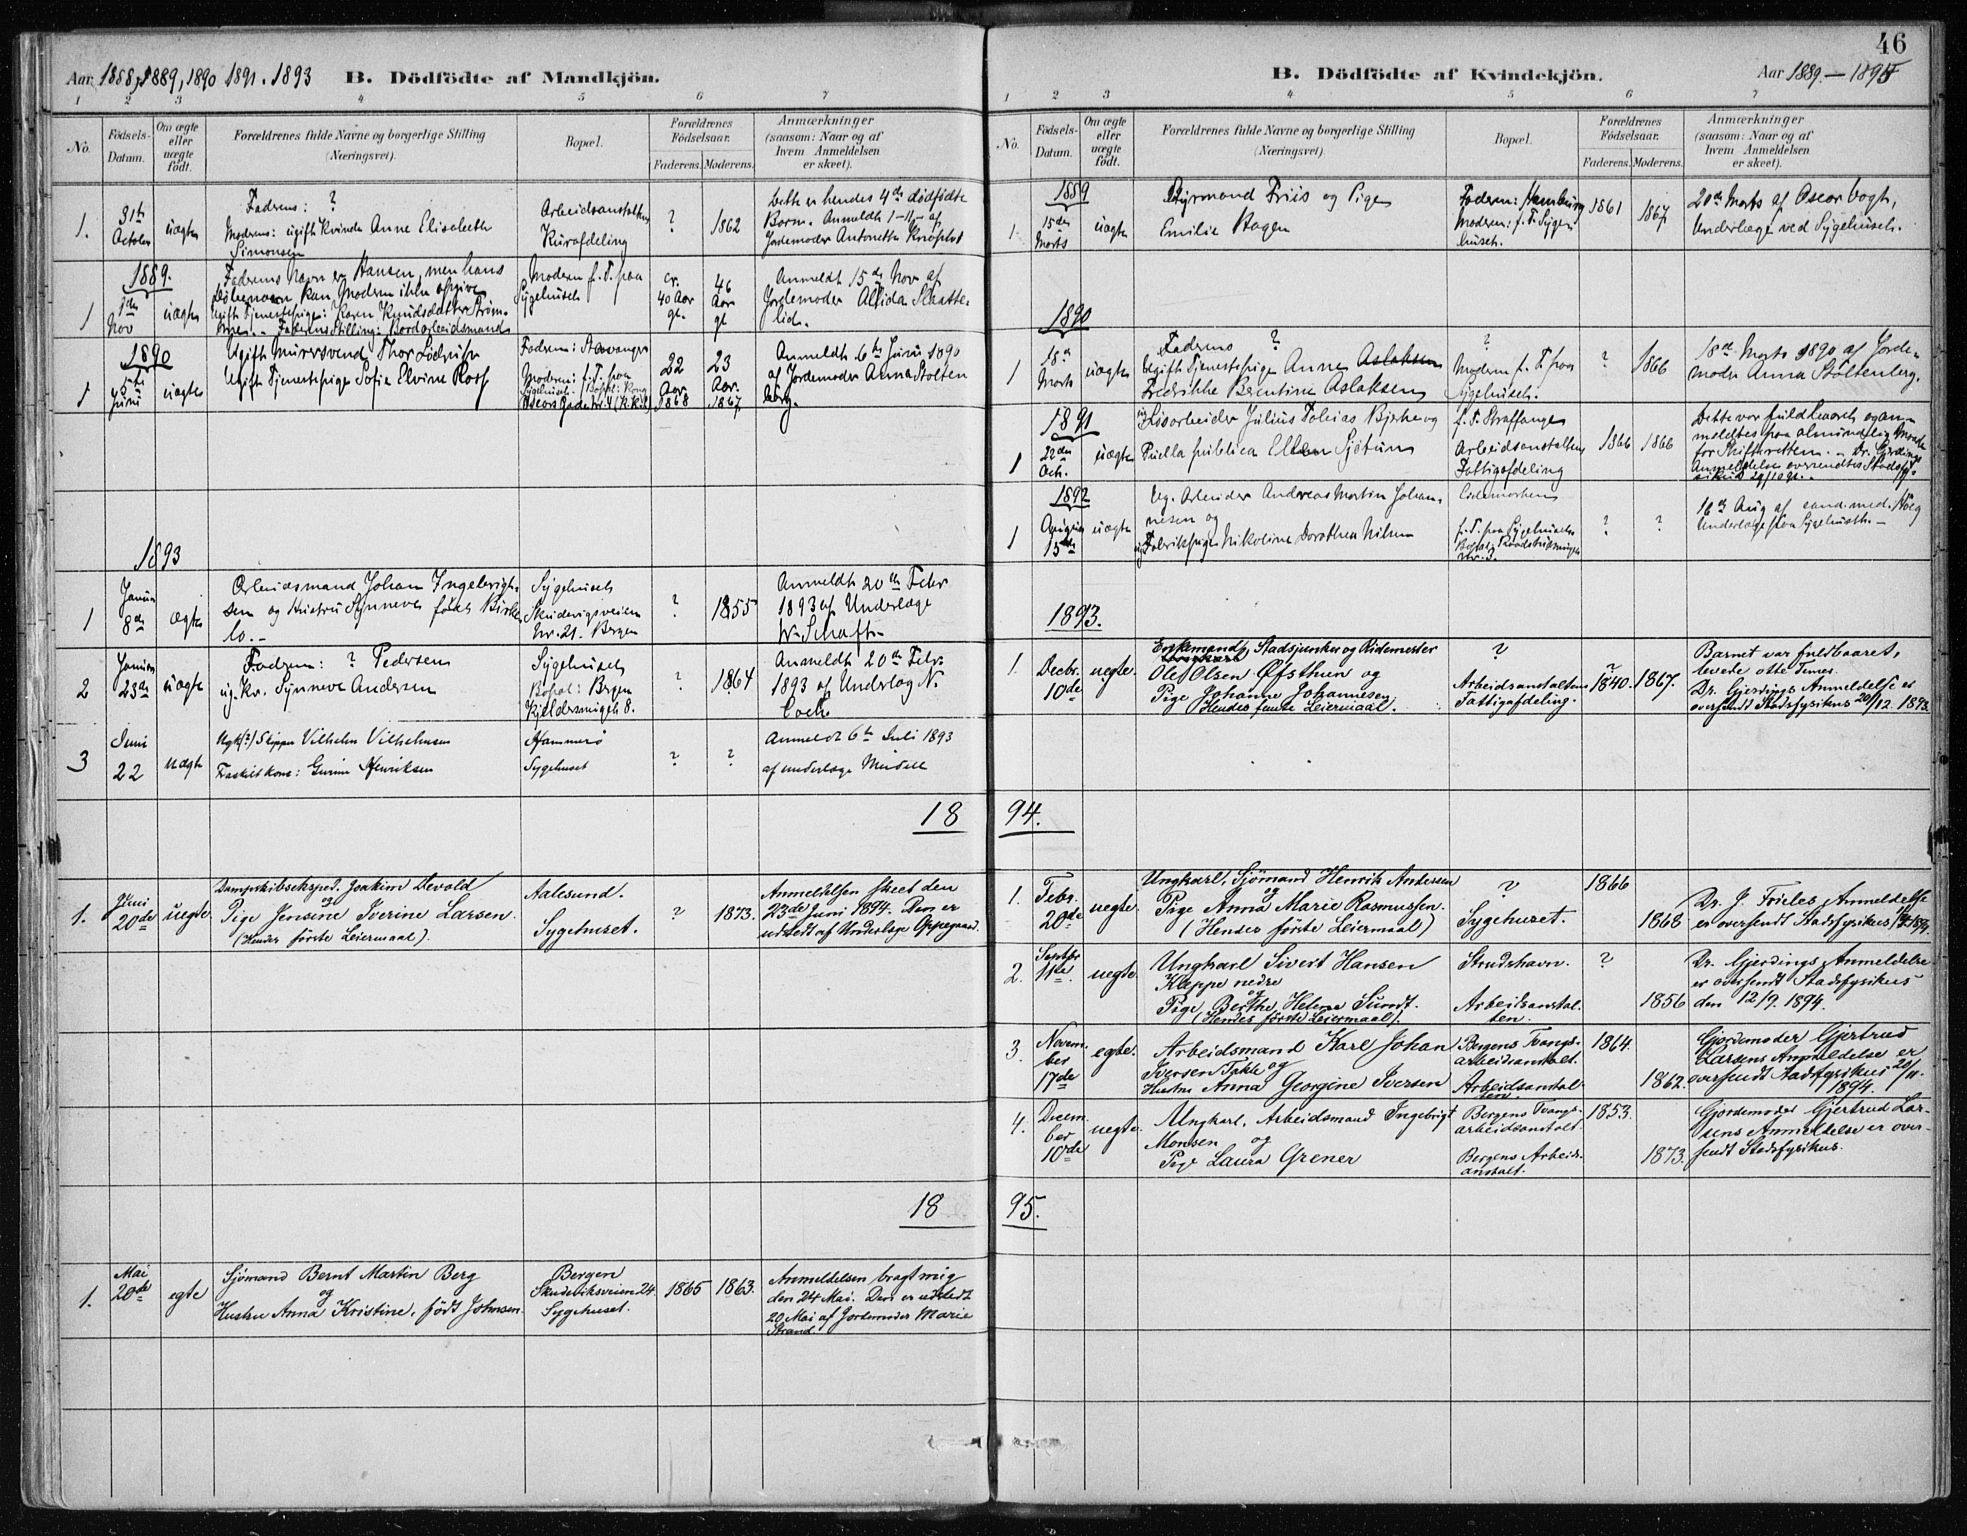 Aar 1888, 1889, 1890 1891. 1893 B. Dödfödte af Mandkjön.
1 2 3 4 5 6 7
No. Födsels-Datum. Om ægte eller uægte födt. Forældrenes fulde Navne og borgerlige Stilling (Næringsvei). Bopæl. Forældrenes Födselsaar. Faderens. Moderens. Anmærkninger (saasom: Naar og af hvem Anmeldelsen er skeet).
1. 31te October uægte
Faderens: ?
Moderens: ugift Kvinde Anne Elisabeth
Simonsen
Arbeidsanstaltens
Kurafdeling
? 1862
Dette er hendes 4de dödfödte
Barn. Anmeldt 1-11- af
Jordemoder Antonette
1889.
1 Nov uægte
Faderens Navn er Hansen, men hans
Döbenavn kan Moderen ikke opgive
Ugift Tjenestepige: Karen Knudsdatter
Faderens Stilling: Bordarbeidsmand
Moderen f. T. paa
Sygehuset
cr. 40 Aar gl. 46 Aar gl
Anmeldt 15de Nov af
Jordemoder Alida Slaatte-
lid.
1890
1 5te Juni uægte
Ugift Murersvend Thor
Ugift Tjenestepige Sofie Elvine Ross
Faderen: Stavanger
Moderen: f. T. paa
Sygehuset. Bopæl: Kong
Oscars Gade Nr. 4
22 Aar. 1868 23 Aar. 1867
Anmeldt 6te Juni 1890
af Jordemoder Anna Stolten
berg.
1893
1 Januar 8de ægte
Arbeidsmand Johan Ingebrigt-
sen og Hustru Synneve födt Birke
lo.-
Sygehuset
Skudevigsveien
Nr. 21. Bergen
? 1855
Anmeldt 20de Febr
1893 af Underlæge
W. Schaft.
2 Januar 23de uægte
Faderen: ? Pedersen
ug. Kv. Synneve Andersen
Sygehuset
Bopæl: Bergen
Kjeldersmuget 8.
? 1864
Anmeldt 20de Febr.
1893 af Underlæg N.
Coch.
3 Juni 22 uægte
Ugk(?) Skipper Vilhelm Vilhelmsen
Fraskilt kone: Gurine Henriksen
Hammerö
Sygehuset
? ?
Anmeldt 6te Juli 1893
af underlæge Meidell
18
1. Juni 20de uegte
Dampskibseksped. Joakim Devold
og
Pige Jensine Iverine Larsen.
(Hendes förste Leiermaal).
Aalesund.
Sygehuset.
? 1873.
Anmeldelsen skeet den
23de Juni 1894. Den er
udstedt af Underlæge Oppegaard.
18
1. Mai 20de egte
Sjömand Bernt Martin Berg
og
Hustru Anna Kristine, födt Johnsen.
Bergen
Skudeviksveien 24.
Sygehuset.
1865 1863.
Anmeldelsen bragt mig
den 24 Mai. Den er udstedt
20 Mai af Jordemoder Marie
Strand
46
B. Dödfödte af Kvindekjön. Aar 1889 - 1895
1 2 3 4 5 6 7
No. Födsels-Datum. Om ægte eller uægte födt. Forældrenes fulde Navne og borgerlige Stilling (Næringsvei). Bopæl. Forældrenes Födselsaar. Faderens. Moderens. Anmærkninger (saasom: Naar og af hvem Anmeldelsen er skeet).
1889
1 15de Marts uægte
Styrmand Friis og Pige
Emilie Hagen
Faderen: Hamburg
Moderen: f. T. Syge-
huset.
1861 1867
20de Marts af Oscar Vogt,
Underlæge ved Sygehuset.
1890
1 18de Marts uægte
Faderens ?
Ugift Tjenestepige Anne Aslaksen
Fredrikke Berntine Aslaksen
?
Moderen f. T. paa
Sygehuset.
? 1866
18de Marts 1890 af Jorde-
moder Anna Stoltenberg.
1891
1 22de Oct. uægte
Lösarbeider Julius Tobias Birke og
Puella publica Ellen Sjötun
f. T. Straffange
Arbeidsanstaltens
Fattigafdeling
1866 1866
Dette var fuldbaaret og an-
meldtes paa almindelig Maade
for Skifteretten. - Dr. Gjerdings
Anmeldelse oversendtes Stadsfy-
sikus 29/10 91.-
1892
1 August 15de uægte
Ug. Arbeider Andreas Martin Johan-
nesen og
ug Fabrikpige Nikoline Dorothea Nilsen
Lademorken
f. T. paa Sygehuset
? ?
16de Aug af cand. med.
Underlæge paa Sygehuset.-
1893.
1. Decbr. 10de uegte.
Enkemand, Stadsjunker og Ridemester
Ole Olsen Øfsthun og
Pige Johanne Johannesen.
Hendes femte Leiermaal.
?
Arbeidsanstaltens
Fattigafdeling.
1840. 1867.
Barnet var fuldbaaret,
levede otte Timer.
Dr. Gjerdings Anmeldelse er
oversendt Stadsfysikus 20/12. 1893.
94.
1. Febr. 20de uegte.
Ungkarl, Sjömand Henrik Andersen
og
Pige Anna Marie Rasmussen.
(Hendes förste Leiermaal)
?
Sygehuset.
1866 1868
Dr. J. Frieles Anmeldelse
er oversendt Stadsfysikus
2. Septbr 11te. uegte.
Ungkarl Sivert Hansen
Kleppe nedre
og
Pige Berthe Helene Sundt.
(Hendes förste Leiermaal).
Strudshavn.
Arbeidsanstal-
ten.
? 1856
Dr. Gjerdings Anmeldelse
er oversendt Stadsfysikus
den 12/9. 1894.
3. Novem-ber 17de egte.
Arbeidsmand Karl Johan
Iversen Takle og
Hustru Anna Georgine Iversen
Bergens Tvangs-
arbeidsanstalt.
Arbeidsanstal-
ten.
1864. 1862.
Gjordemoder Gjertrud
Larsens Anmeldelse er
oversendt Stadsfysikus 20/11.
1894.
4. Decem-ber 10de uegte.
Ungkarl, Arbeidsmand Ingebrigt
Monsen og
Pige Laura Grener
Bergens Tvangs-
arbeidsanstalt.
Bergens Arbeids-
anstalt.
1853. 1873.
Gjordemoder Gjertrud Lar-
sens Anmeldelse er over-
sendt Stadsfysikus.
95.